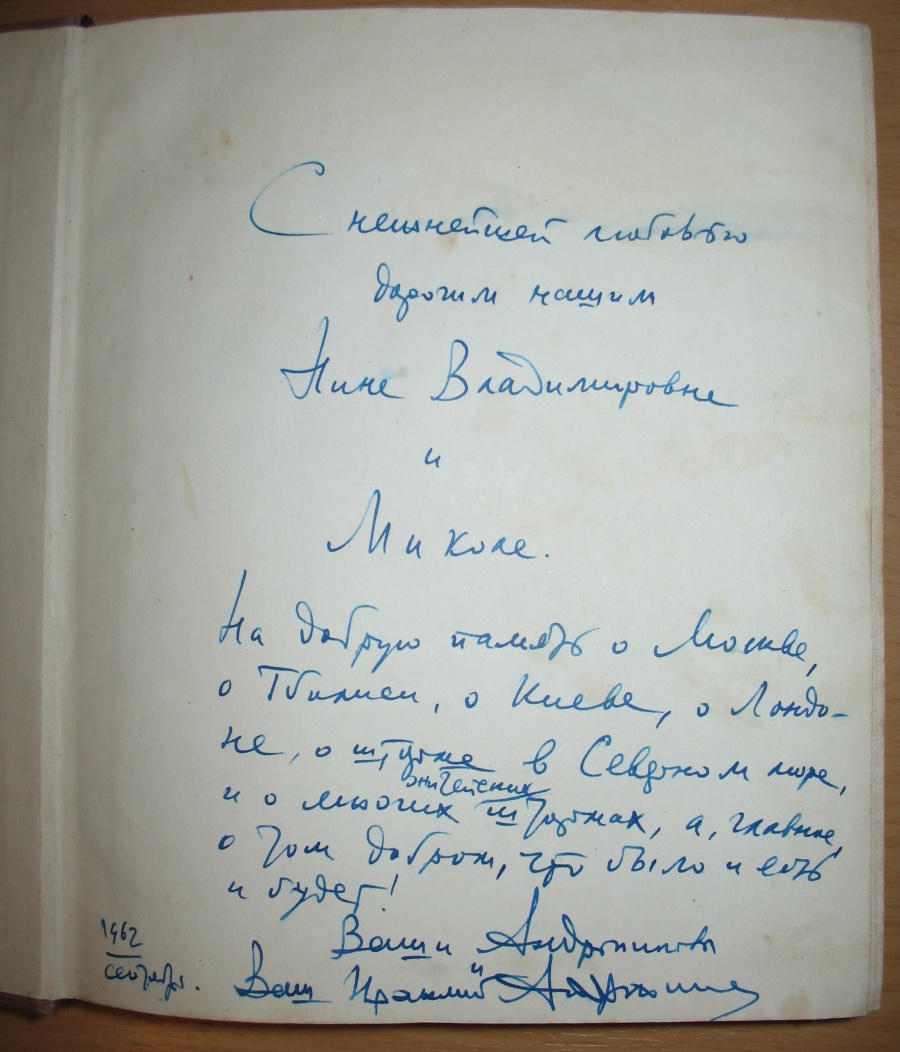 С нежнейшей любовью
дорогим нашим
Нине Владимировне
и
Миколе.
На добрую память о Москве,
о Тбилиси, о Киеве, о Лондо-
не, о шторме в Северном море,
и о многих житейских штормах, а, главное,
о том добром, что было и есть
и будет!
Ваши Андрониковы
и
Ваш Ираклий Андроников
1962
сентябрь.